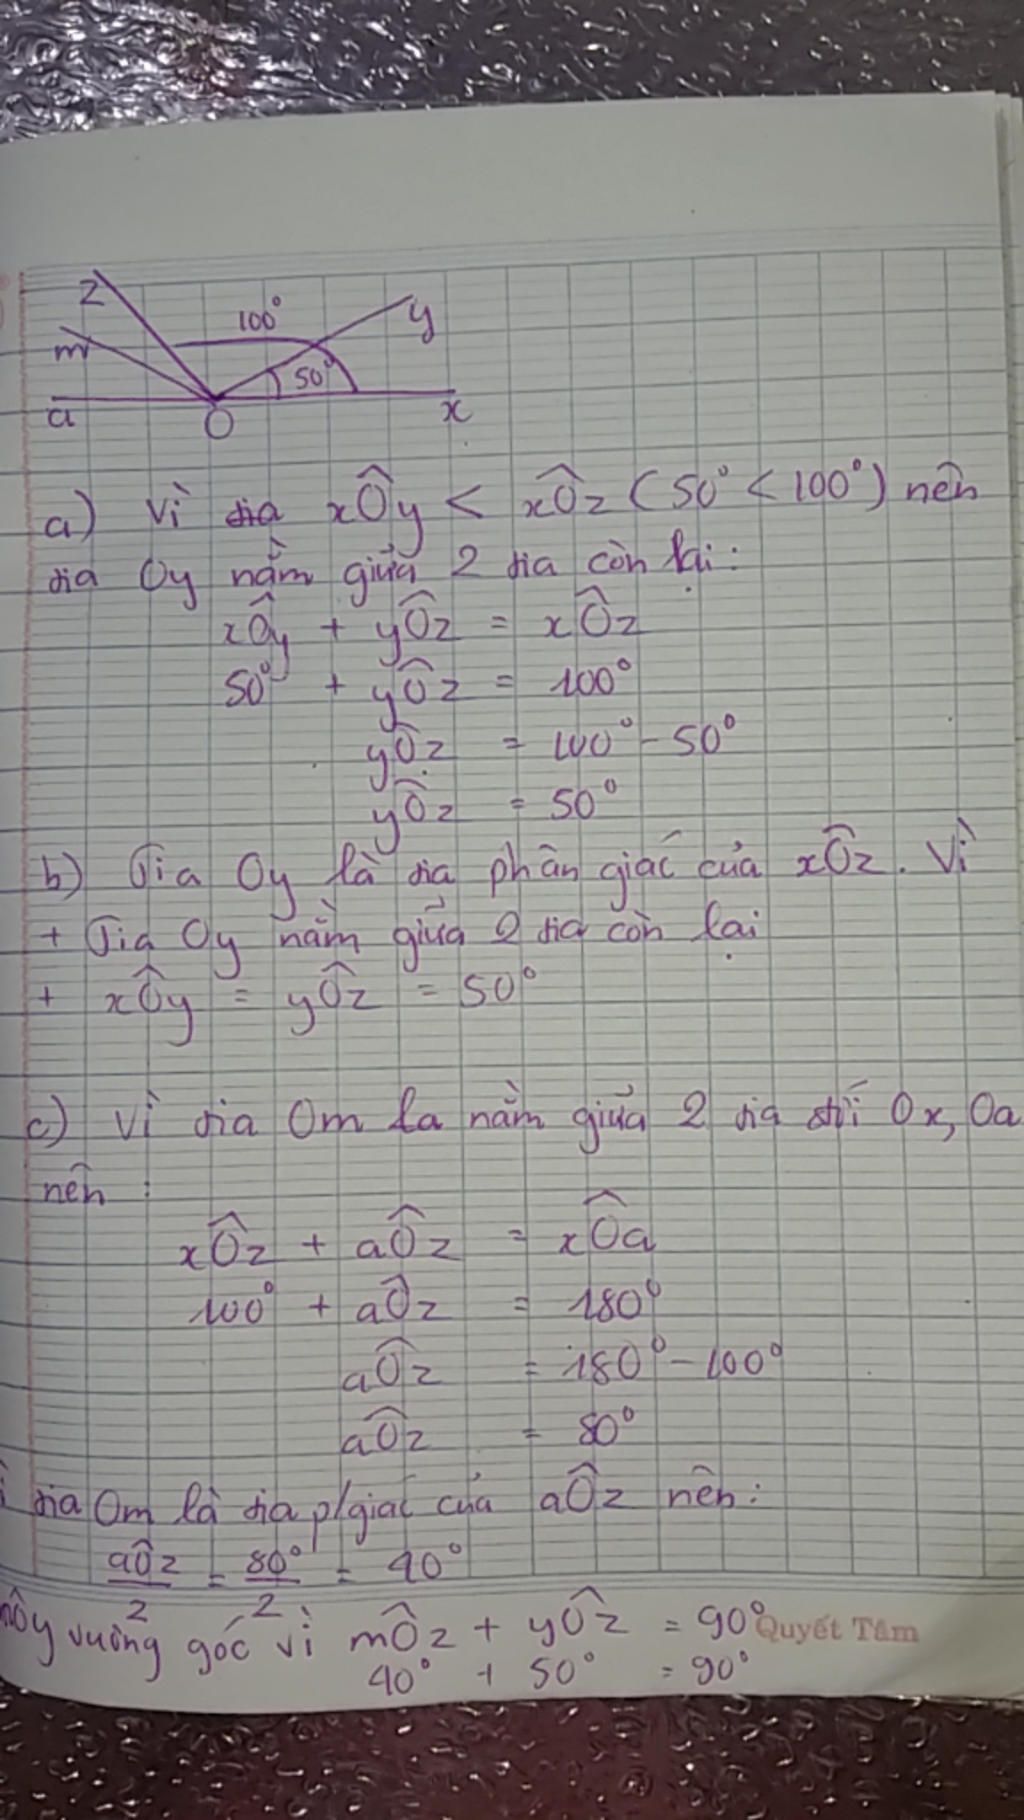 z
100°
y
m
50°
a
O
x
a) Vì tia xÔy < xÔz (50° < 100°) nên
tia Oy nằm giữa 2 tia còn lại:
xÔy + yÔz = xÔz
50° + yÔz = 100°
yÔz = 100° - 50°
yÔz = 50°
b) Tia Oy là tia phân giác của xÔz. Vì
+ Tia Oy nằm giữa 2 tia còn lại
+ xÔy = yÔz = 50°
c) Vì tia Om la nằm giữa 2 tia đối Ox, Oa
nên :
xÔz + aÔz = xÔa
100° + aÔz = 180°
aÔz = 180° - 100°
aÔz = 80°
tia Om là tia p/giác của aÔz nên:
aÔz/2 = 80°/2 = 40°
vuông góc vì mÔz + yÔz = 90°
Quyết Tâm
40° + 50° = 90°